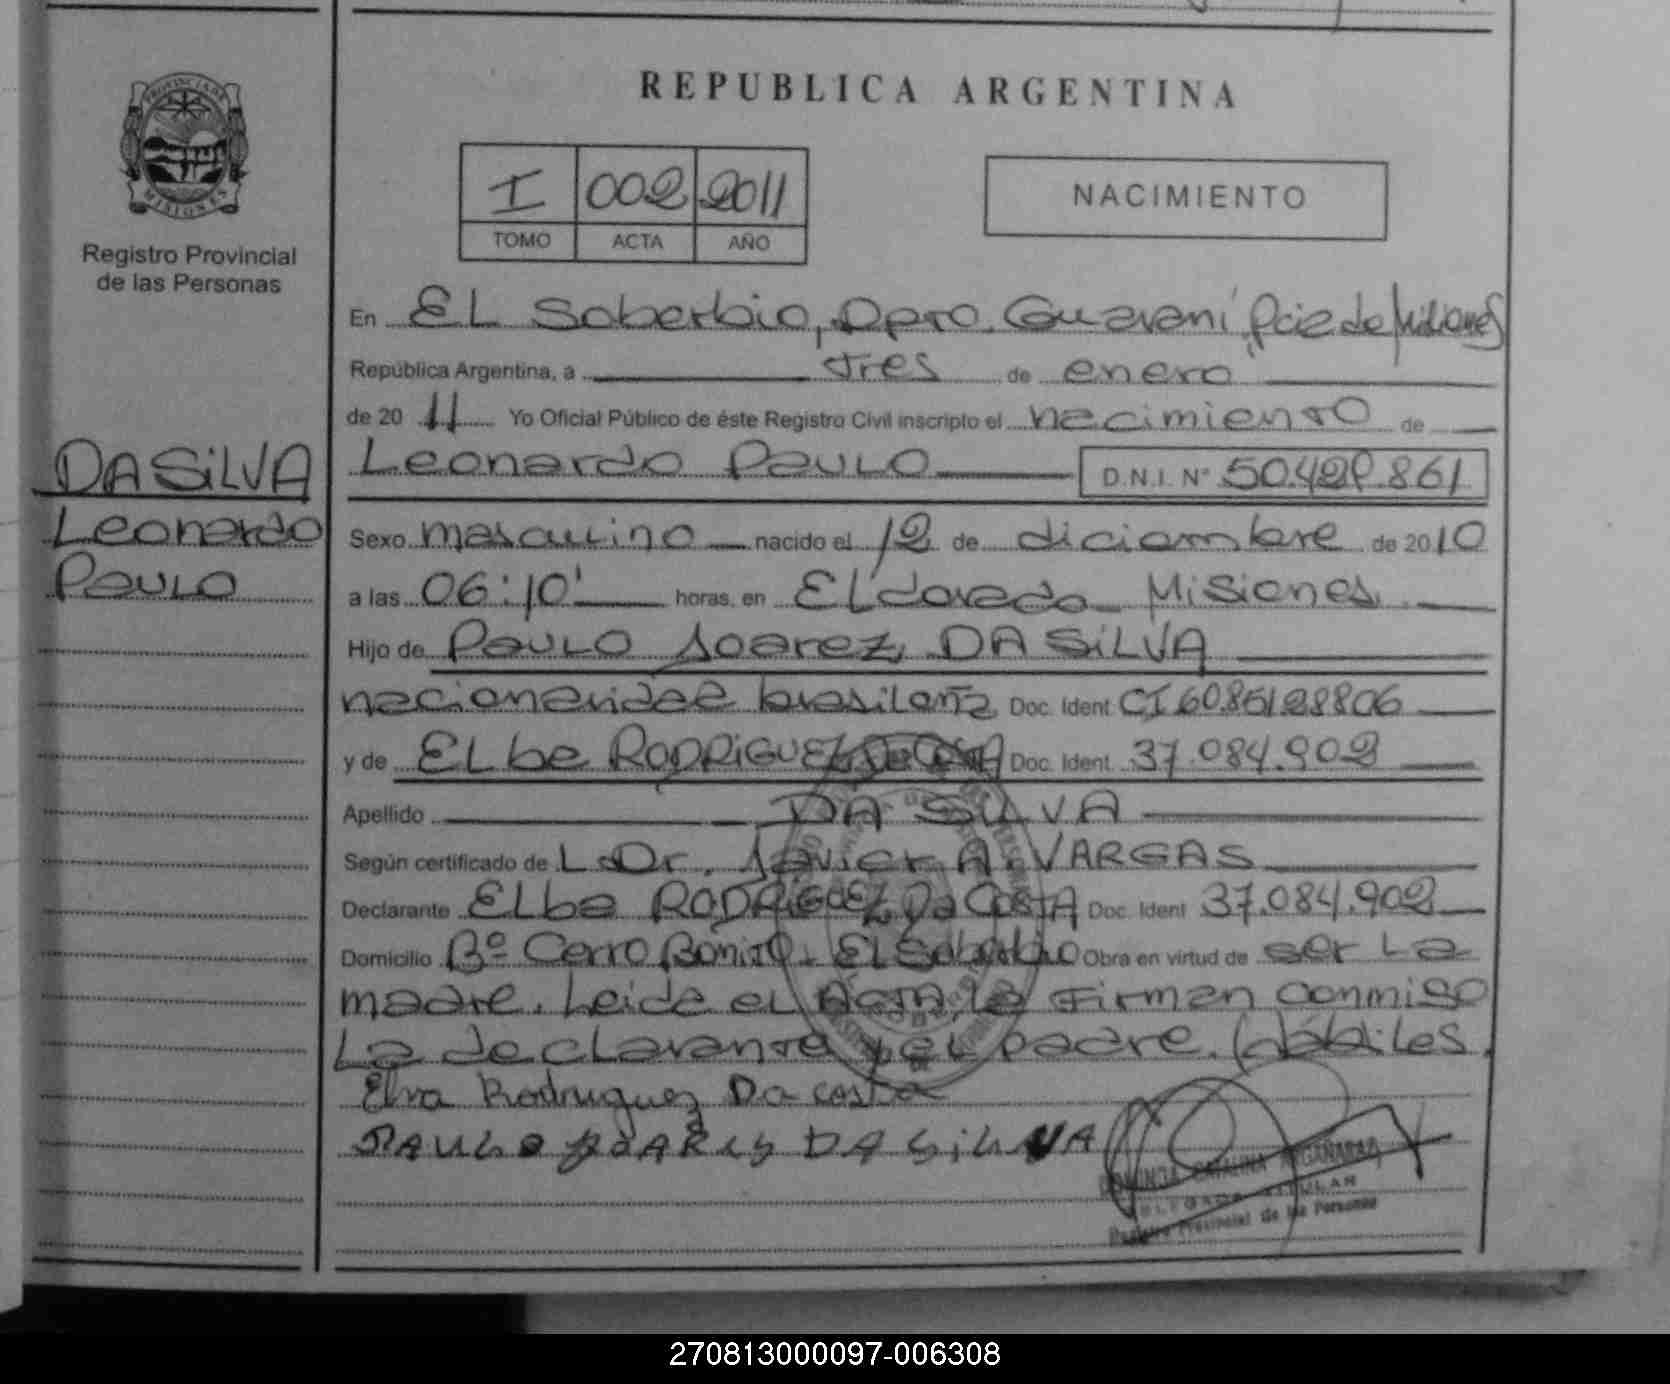 REPUBLICA ARGENTINA
PROVINCIA DE
MISIONES
Registro Provincial
de las Personas
I 002 2011
TOMO ACTA AÑO
NACIMIENTO
En EL Soberbio, Dpto. Guaraní, Pcia de Misiones
República Argentina, a tres de enero
de 20 11 Yo Oficial Público de éste Registro Civil inscripto el nacimiento de
DA SiLVA
Leonardo
Paulo
Leonardo Paulo D.N.I. Nº 50.429.861
Sexo masculino nacido el 12 de diciembre de 2010
a las 06:10' horas, en Eldorado Misiones
Hijo de Paulo Soarez, DA SiLVA
nacionalidad brasileña Doc. Ident CI 6085128806
y de ELba RODRiGUEZ Da COSTA Doc. Ident. 37.084.902
Apellido DA SILVA
Según certificado de L Dr. Javier A. VARGAS
Declarante ELba RODRiGUEZ Da COSTA Doc. Ident 37.084.902
Domicilio Bº Cerro Bonito - El Soberbio Obra en virtud de ser La
madre. Leida el ACTA, la Firman conmigo
La declarante y el padre. hábiles.
Elva Rodriguez Da costa
PAULO SOARES DA SILVA
CATALINA
DELEGADA TITULAR
Registro Provincial de las Personas
270813000097-006308